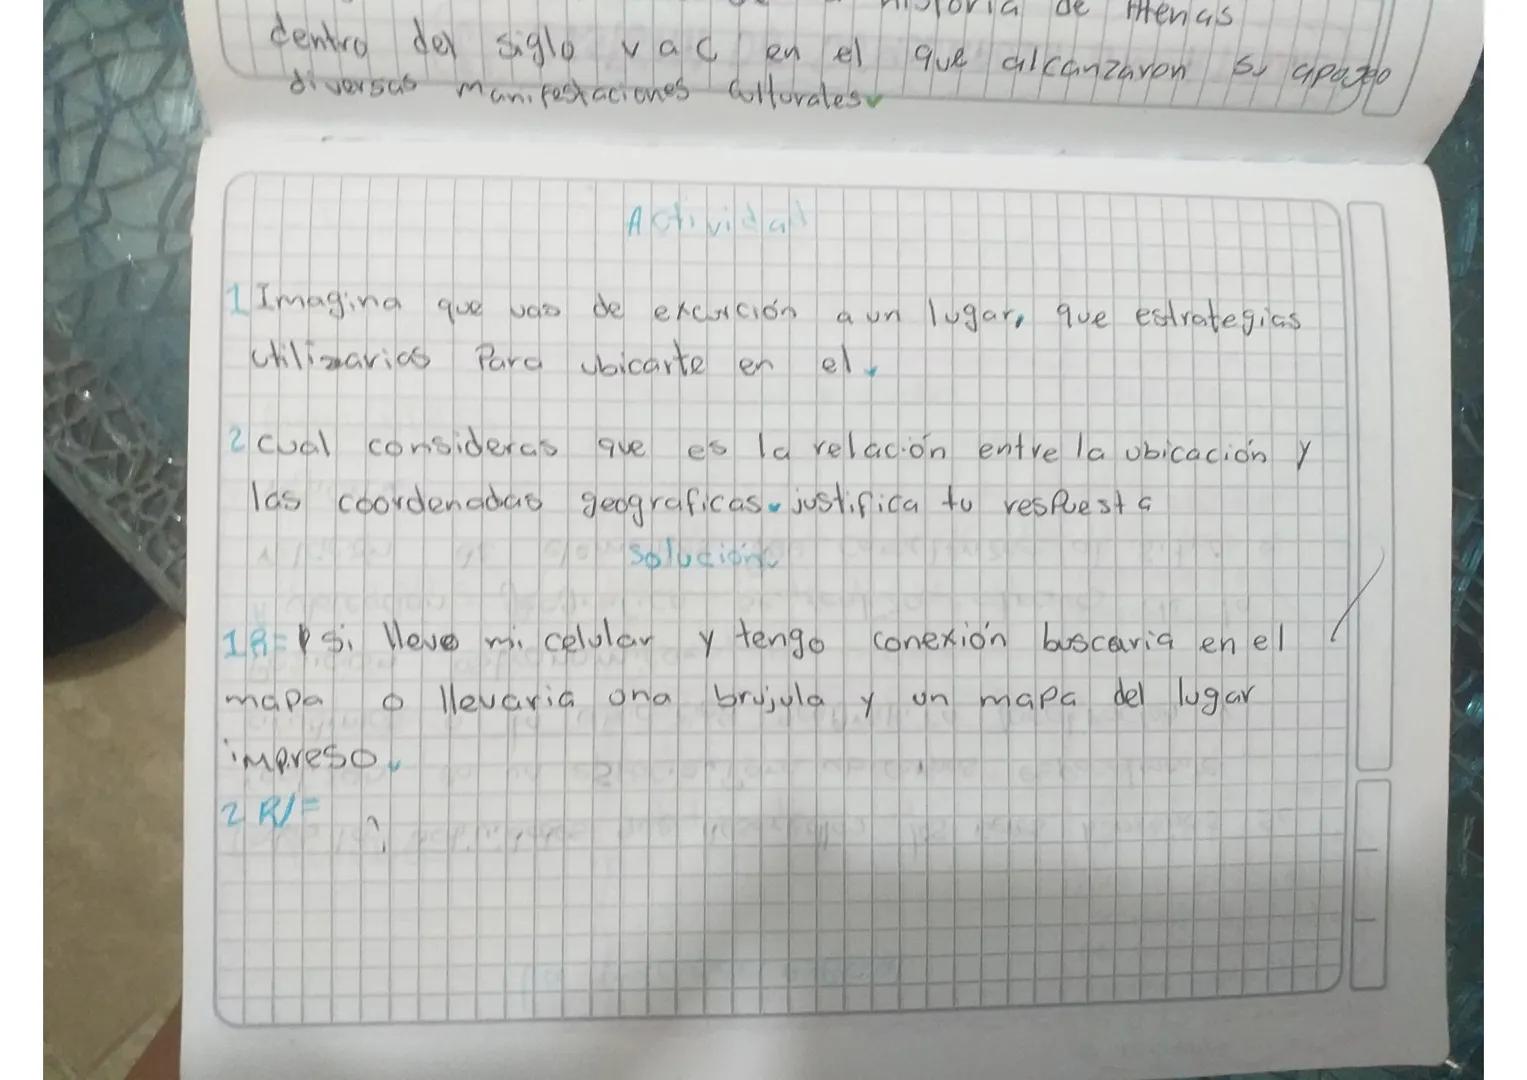 historia de Atenas
dentro del siglo v a C en el que alcanzaron su apogeo
diversas manifestaciones culturales.
Actividad
1 Imagina que vas de excurción a un lugar, que estrategias
utilizarias Para ubicarte en el.
2 cual consideras que es la relación entre la ubicación y
las coordenadas geograficas. justifica tu respuesta
solución
1R= si llevo mi celular y tengo conexión buscaria en el
mapa o llevaria una brujula y un mapa del lugar
impreso.
2 R/= ?